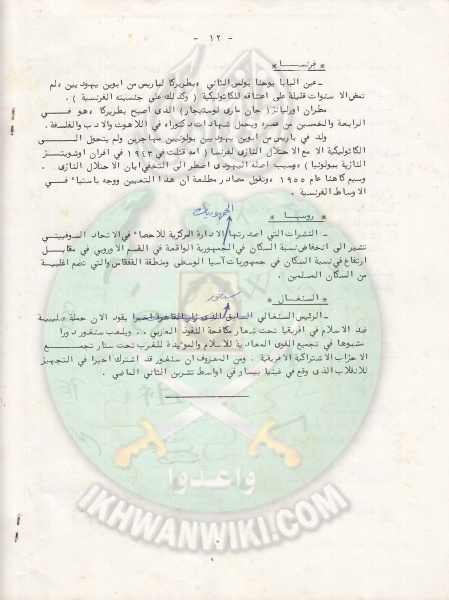 - ١٢ -
* فرنسا *
ـ عين البابا يوحنا بولس الثاني ، بطريركا لباريس من ابوين يهوديين ، لم
تمض الا سنوات قليلة على اعتناقه للكاثوليكية ( وكذلك على جنسيته الفرنسية ) .
مطران اورليانز ( جان ماري لوستيجار ) الذي اصبح بطريركا ، هو في
الرابعة والخمسين من عمره ويحمل شهادات دكتوراه في اللاهوت والادب والفلسفة .
ولد في باريس من ابوين يهوديين بولونيين مهاجرين ولم يتحول الى
الكاثوليكية الا مع الاحتلال النازي لفرنسا ( امه قتلت في ١٩٤٣ في افران اوشويتز
النازية ببولونيا ) ، وبسبب اصله اليهودي اضطر الى التخفي ابان الاحتلال النازي .
وسيم كاهنا عام ١٩٥٥ ، وتقول مصادر مطلعة ان هذا التعيين ووجه باستياء في
الاوساط الفرنسية .
الجمهوريات
* روسيا *
ـ النشرات التي اصدرتها الادارة المركزية للاحصاء في الاتحاد السوفييتي
تشير الى انخفاض نسبة السكان في الجمهورية الواقعة في القسم الاوروبي في مقابل
ارتفاع في نسبة السكان في جمهوريات آسيا الوسطى ومنطقة القفقاس والتي تضم اغلبية
من السكان المسلمين .
سنغور
* السنغال *
ـ الرئيس السنغالي السابق الذي زار القاهرة اخيرا يقود الان حملة صليبية
ضد الاسلام في افريقيا تحت شعار مكافحة النفوذ العربي .. ويلعب سنغور دورا
مشبوها في تجميع القوى المعادية للاسلام والمؤيدة للغرب تحت ستار تجمع
الاحزاب الاشتراكية الافريقية . ومن المعروف ان سنغور قد اشترك اخيرا في التجهيز
للانقلاب الذي وقع في غينيا بيساو في اواسط تشرين الثاني الماضي .
واعدوا
IKHWANWIKI.COM